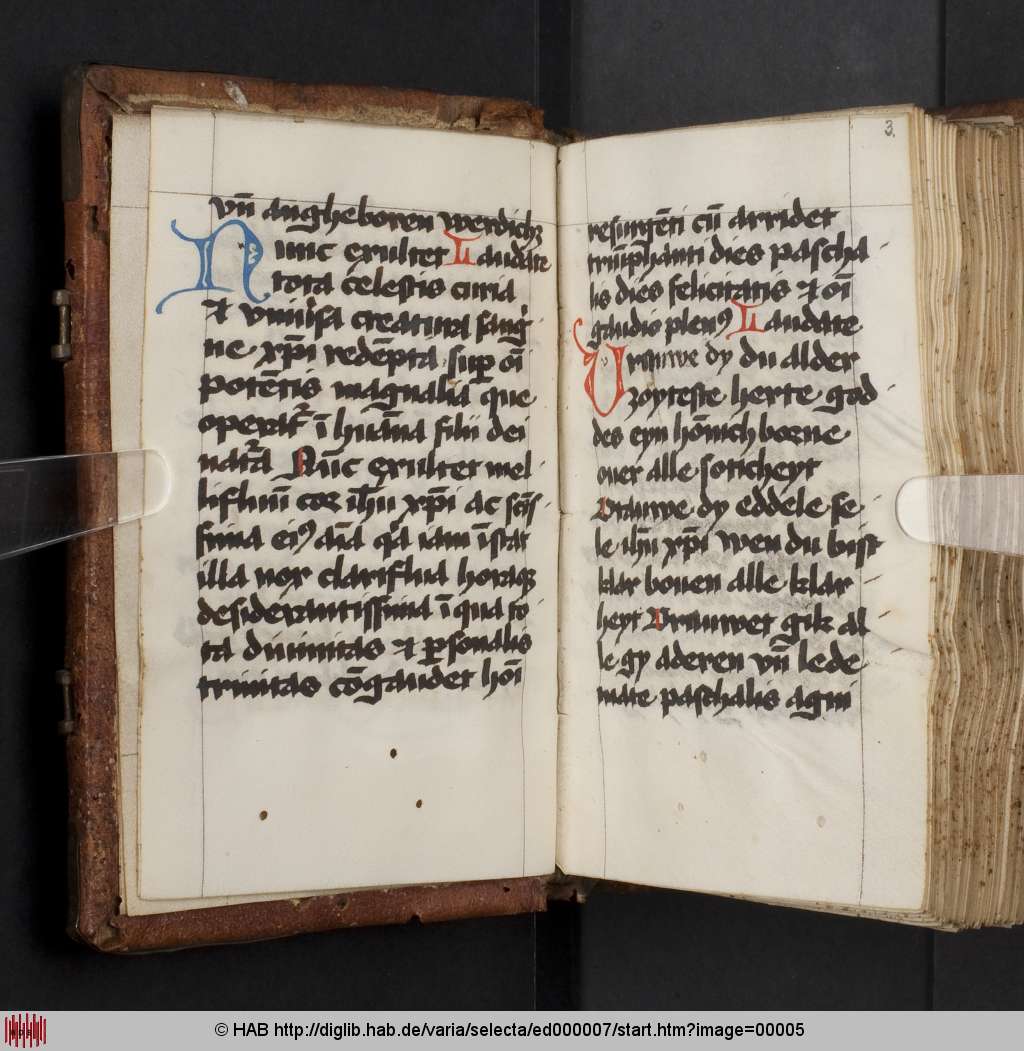 vn̄ angheboren werdichꝫ
Nunc exultet Laudate
tota celestis curia
⁊ vniu̾sa creatura sang̾
ne xp̄i redēpta sup̱ oī
potētis magnalia que
operat᷑ ī hūana filii dei
nat̾a Nūc exultet mel
lifluū cor ih̄u xp̄i ac sc̄is
sima eiꝰ aīa q̱a iam īstat
illa nox clariflua horaꝫ
desiderantissima ī qua to
ta diuinitas ⁊ ꝑsonalis
trinitas cōgaudet hoī
3.
resurgēti cū arridet
triūphanti dies pascha
lis dies felicitatis ⁊ oī
gaudio plenꝰ Laudate
Vrauwe dy du alder
zoyteste herte god
des eyn hōnich borne
ouer alle soticheyt
Vrauwe dy eddele se
le ih̄u xp̄i wen du bist
klar bouen alle klar
heyt Vrauwet gik al
le gy aderen vn̄ lede
mate paschalis agni
© HAB http://diglib.hab.de/varia/selecta/ed000007/start.htm?image=00005